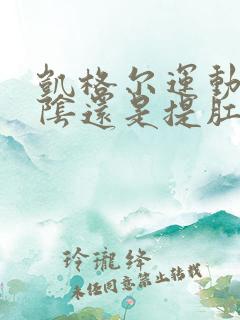 凱格尔運動
陰還是提肛
玲瓏绛
未经同意禁止转载